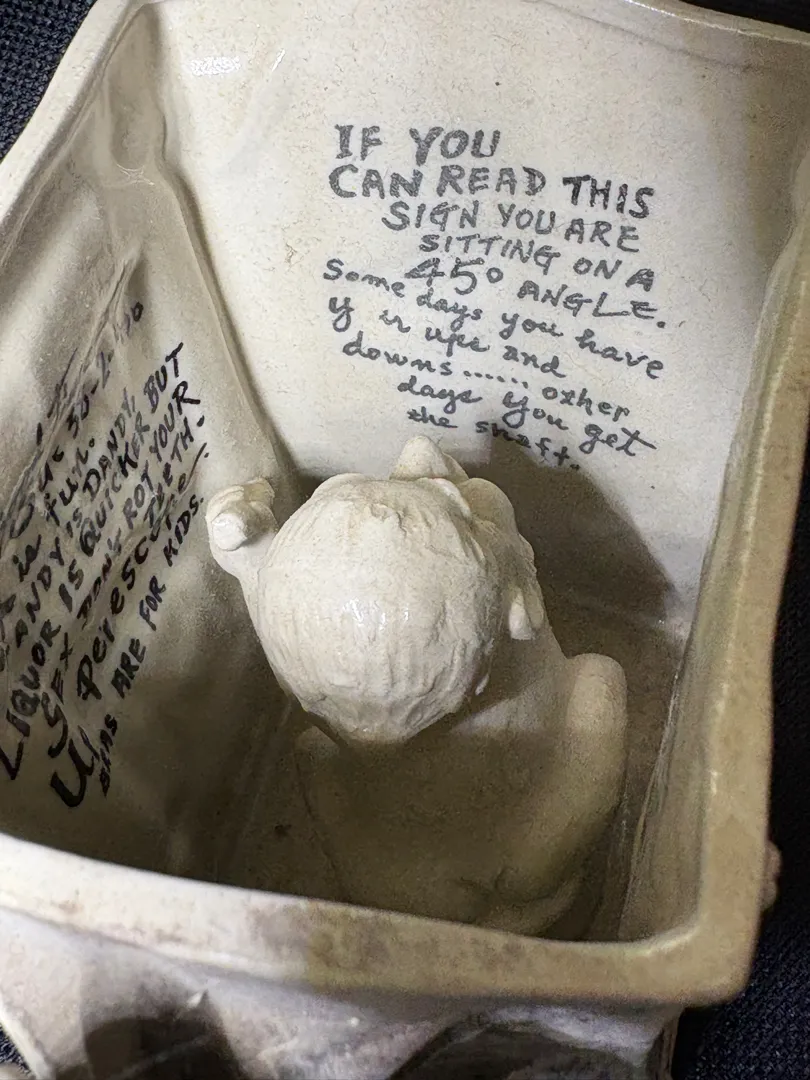 IF YOU
CAN READ THIS
SIGN YOU ARE
SITTING ON A
45° ANGLE.
Some days you have
y ur ups and
downs...... other
days you get
the shaft.
is fun.
CANDY IS DANDY,
LIQUOR IS QUICKER BUT
SEX DON'T ROT YOUR
TEETH.
ARE FOR KIDS.